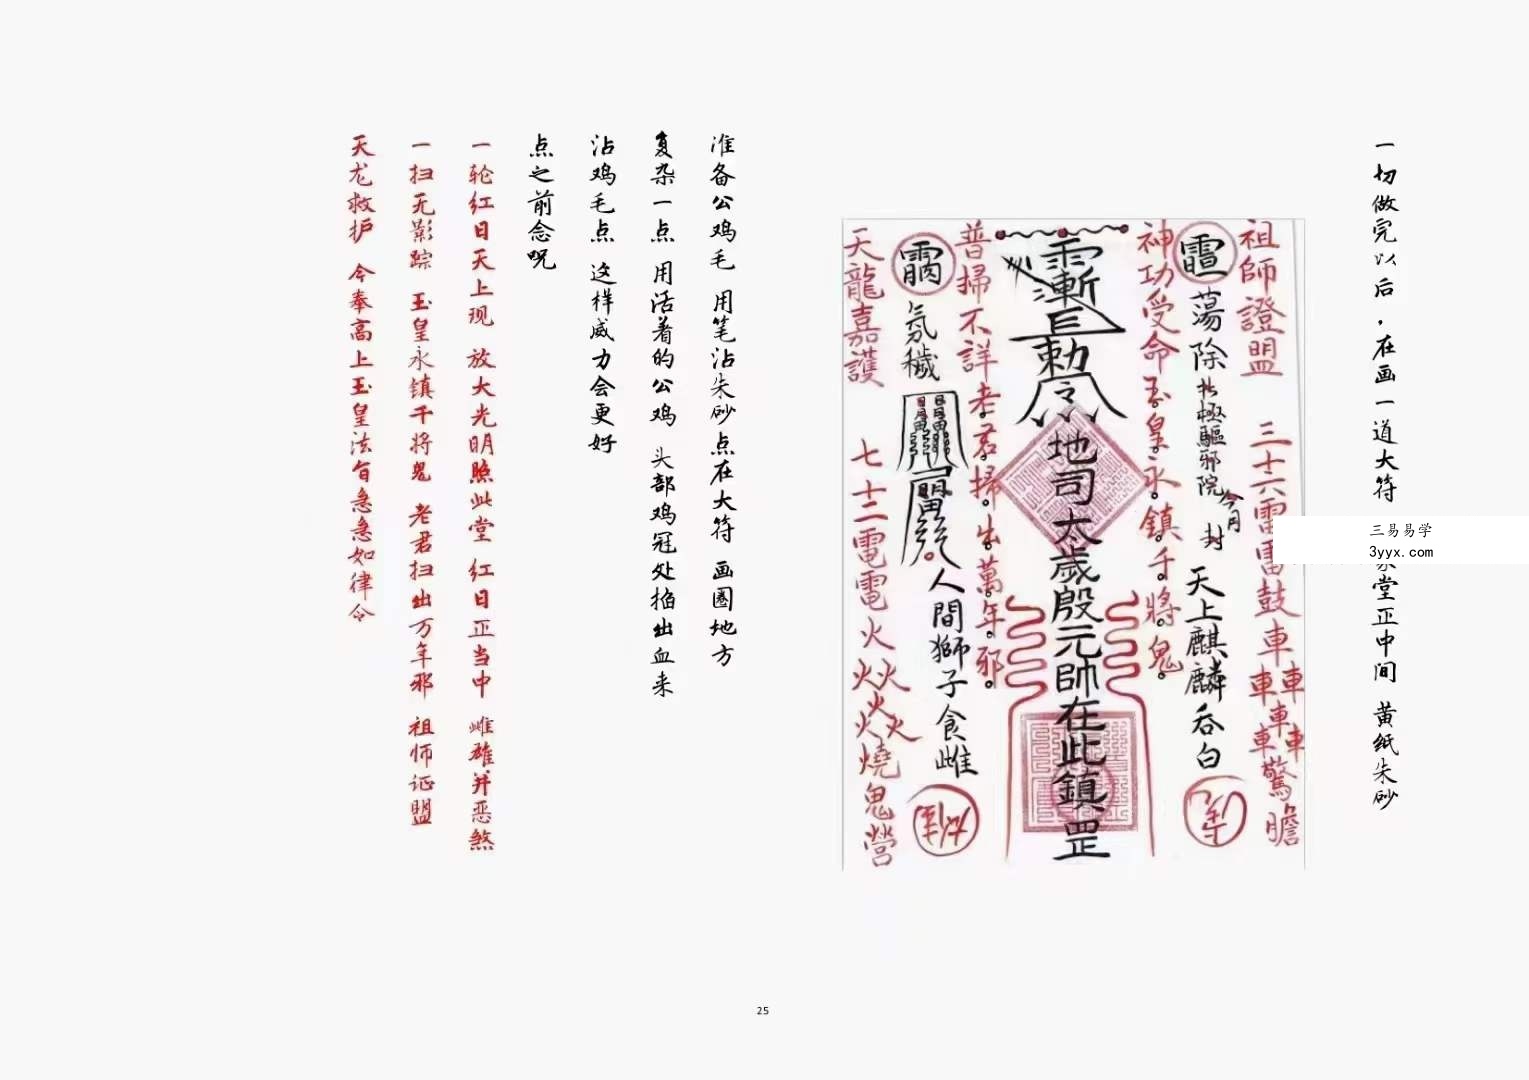 一切做完以后，在画一道大符 堂正中间 黄纸朱砂
三易易学
3yyx.com
祖師證盟 三十六雷雷鼓車車車車車車驚膽
蕩除北極驅邪院 今月 封 天上麒麟吞白
神功受命玉皇永鎮千將鬼
勅令地司太歲殷元帥在此鎮罡
普掃不詳老君掃出萬年邪
氛穢 人間獅子食雌
天龍嘉護 七十二電電火火火火火火燒鬼營
准备公鸡毛 用笔沾朱砂点在大符 画圈地方
复杂一点 用活着的公鸡 头部鸡冠处掐出血来
沾鸡毛点 这样威力会更好
点之前念咒
一轮红日天上现 放大光明照此堂 红日正当中 雌雄并恶煞
一扫无影踪 玉皇永镇千将鬼 老君扫出万年邪 祖师证盟
天龙救护 今奉高上玉皇法旨急急如律令
25